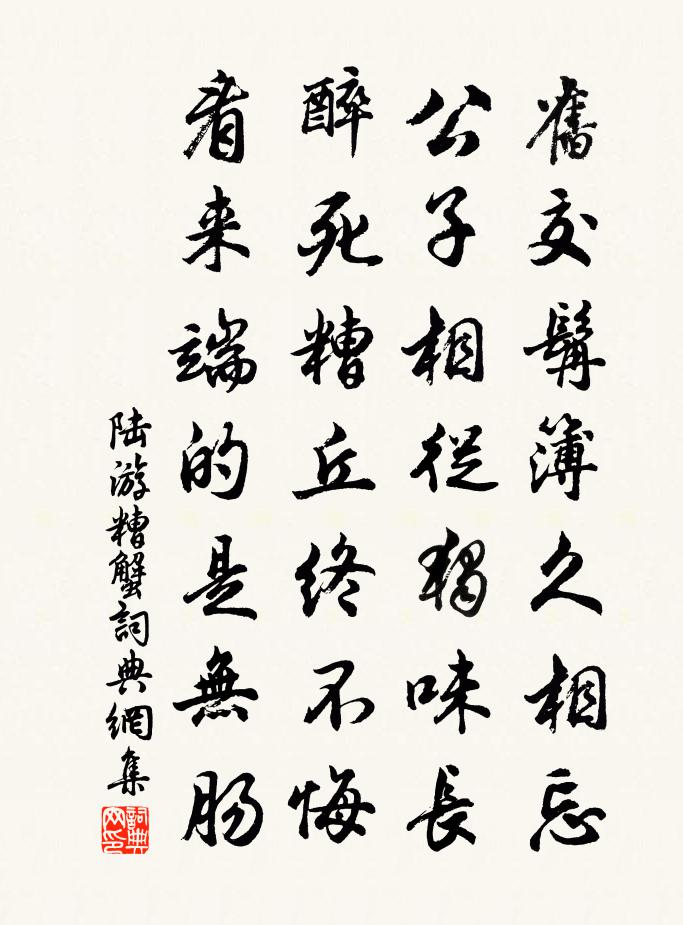 舊交髯簿久相忘
公子相從獨味長
醉死糟丘終不悔
看来端的是無肠
陆游糟蟹詞典網集
詞典網印